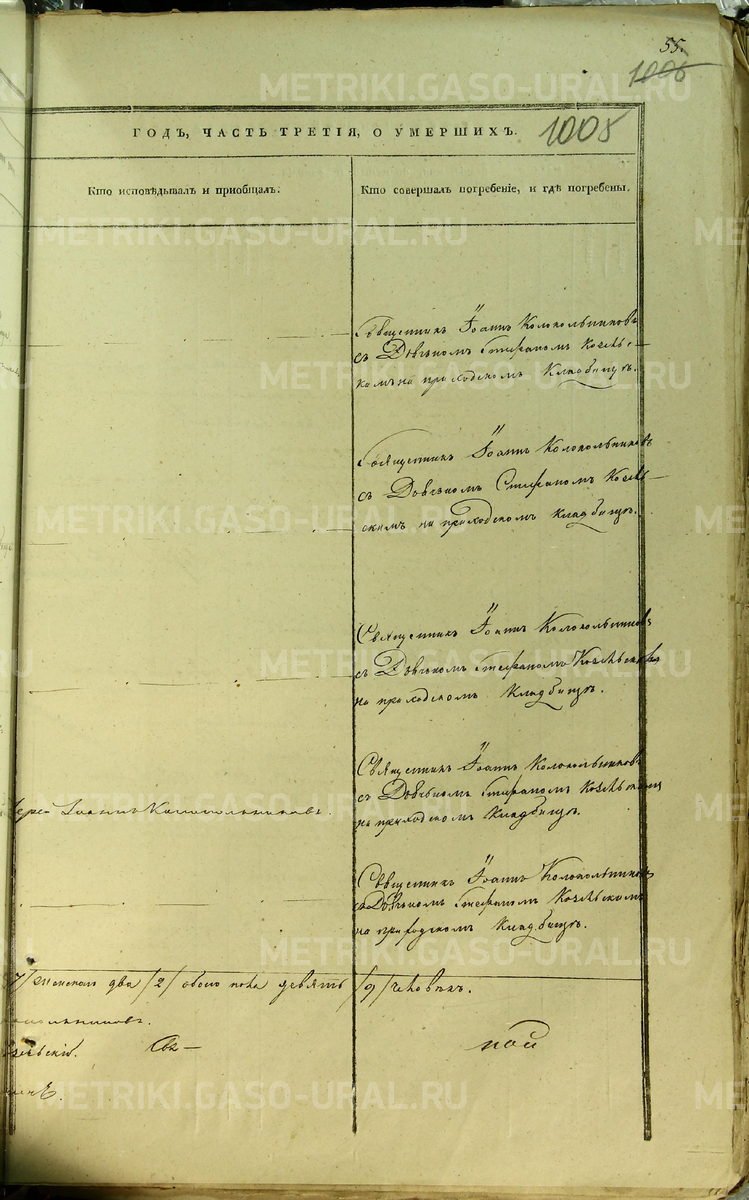 55.
1006
ГОДЪ, ЧАСТЬ ТРЕТІЯ, О УМЕРШИХЪ.
1005
Кто исповѣдывалъ и пріобщалъ.
Кто совершалъ погребеніе, и гдѣ погребены.
Священникъ Іоаннъ Колокольниковъ
съ Дьячкомъ Стефаномъ Козель-
скимъ на приходскомъ Кладбищѣ.
Священникъ Іоаннъ Колокольниковъ
съ Дьячкомъ Стефаномъ Козель-
скимъ на приходскомъ кладбищѣ.
Священникъ Іоаннъ Колокольниковъ
съ Дьячкомъ Стефаномъ Козельскимъ
на приходскомъ Кладбищѣ.
Іоаннъ Колокольниковъ.
Священникъ Іоаннъ Колокольниковъ
съ Дьячкомъ Стефаномъ Козельскимъ
на приходскомъ Кладбищѣ.
Священникъ Іоаннъ Колокольниковъ
съ Дьячкомъ Стефаномъ Козельскимъ
на приходскомъ Кладбищѣ.
7/ женска два /2/ обоего пола девять /9/ человѣкъ.
METRIKI.GASO-URAL.RU